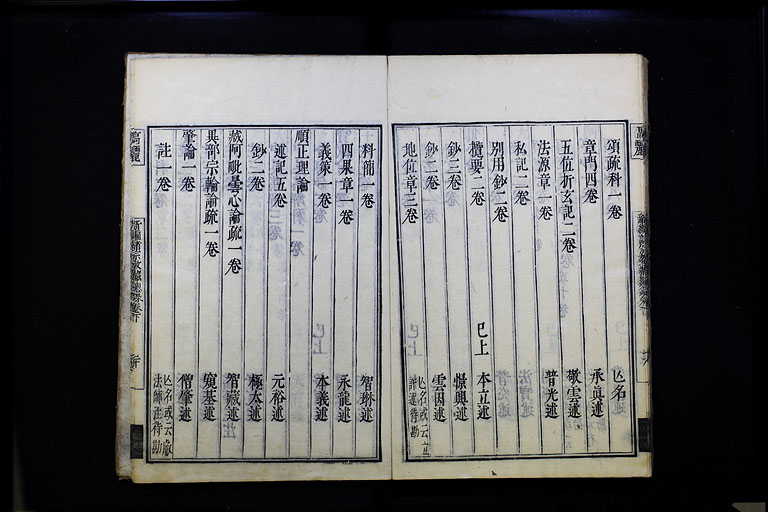 頌疏科一卷 亡名
章門四卷 承眞述
五位折玄記二卷 敬雲述
法源章一卷 普光述
私記二卷
別用鈔一卷
樞要二卷 已上 本立述
鈔三卷 憬興述
鈔二卷 雲因述
地位章三卷 亡名或云立
詳述待勘
科簡一卷 智琳述
四果章一卷 永龍述
義策一卷 本義述
順正理論
述記五卷 元裕述
鈔二卷 極太述
藏阿毗曇心論疏一卷 智巖述
異部宗輪論疏一卷 窺基述
肇論一卷 僧肇述
註一卷 亡名或云
法師注待勘